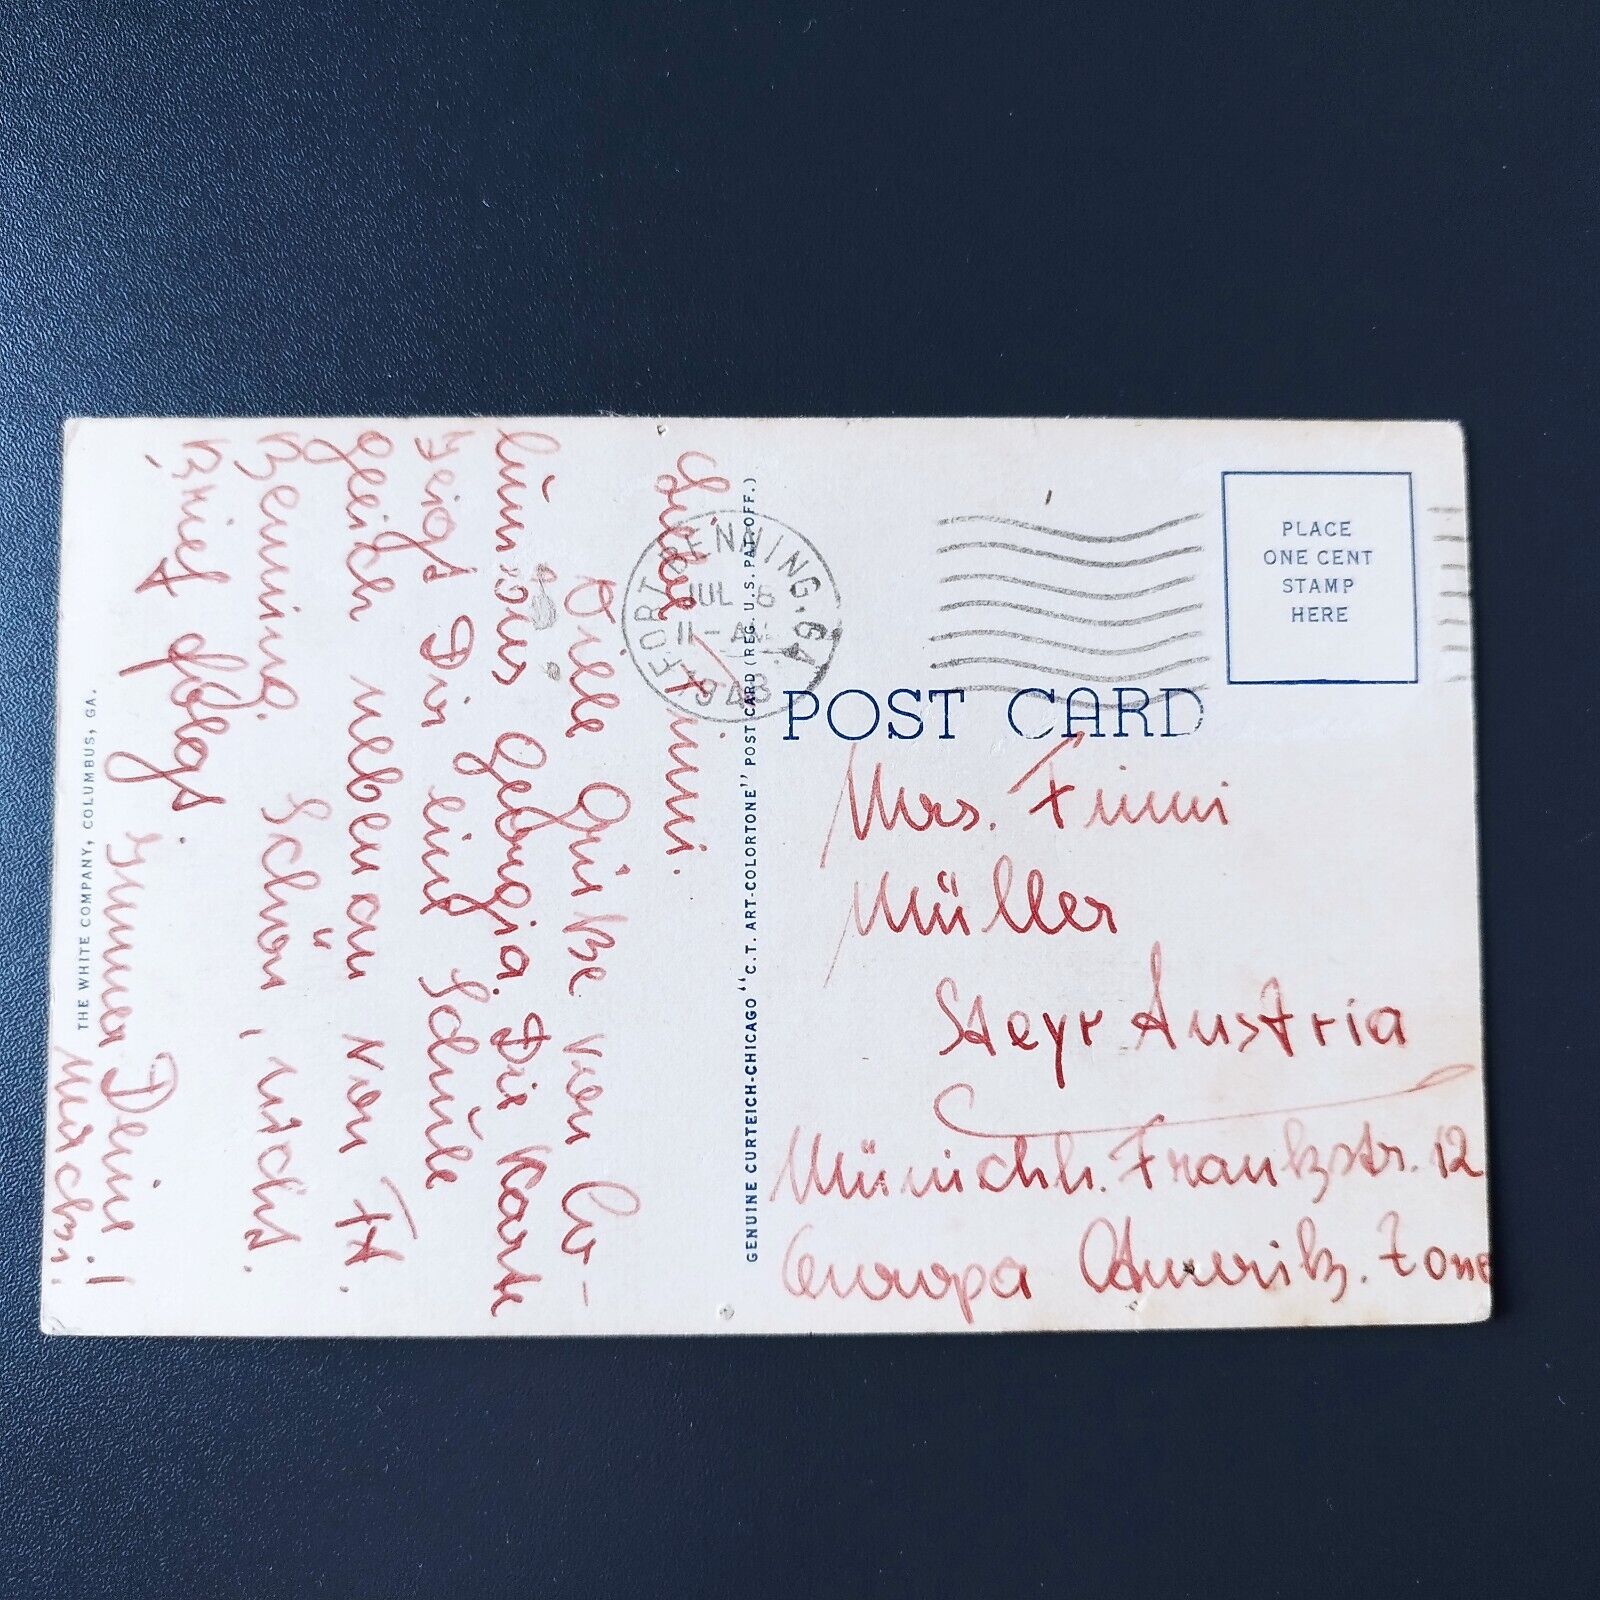 Liebe Finni.
Viele Grüße von Co-
lumbus Georgia. Die Karte
zeigt Dir eine Schule
gleich nebenan von Ft.
Benning. Schön, nicht.
Brief folgt.
immer Deine!
THE WHITE COMPANY, COLUMBUS, GA.
GENUINE CURTEICH-CHICAGO "C.T. ART-COLORTONE" POST CARD (REG. U.S. PAT. OFF.)
FORT BENNING. GA
JUL 6
11-AM
1948
PLACE
ONE CENT
STAMP
HERE
POST CARD
Mrs. Finni
Müller
Steyr Austria
Münichh. Frankstr. 12
Europa Amerik. Zone